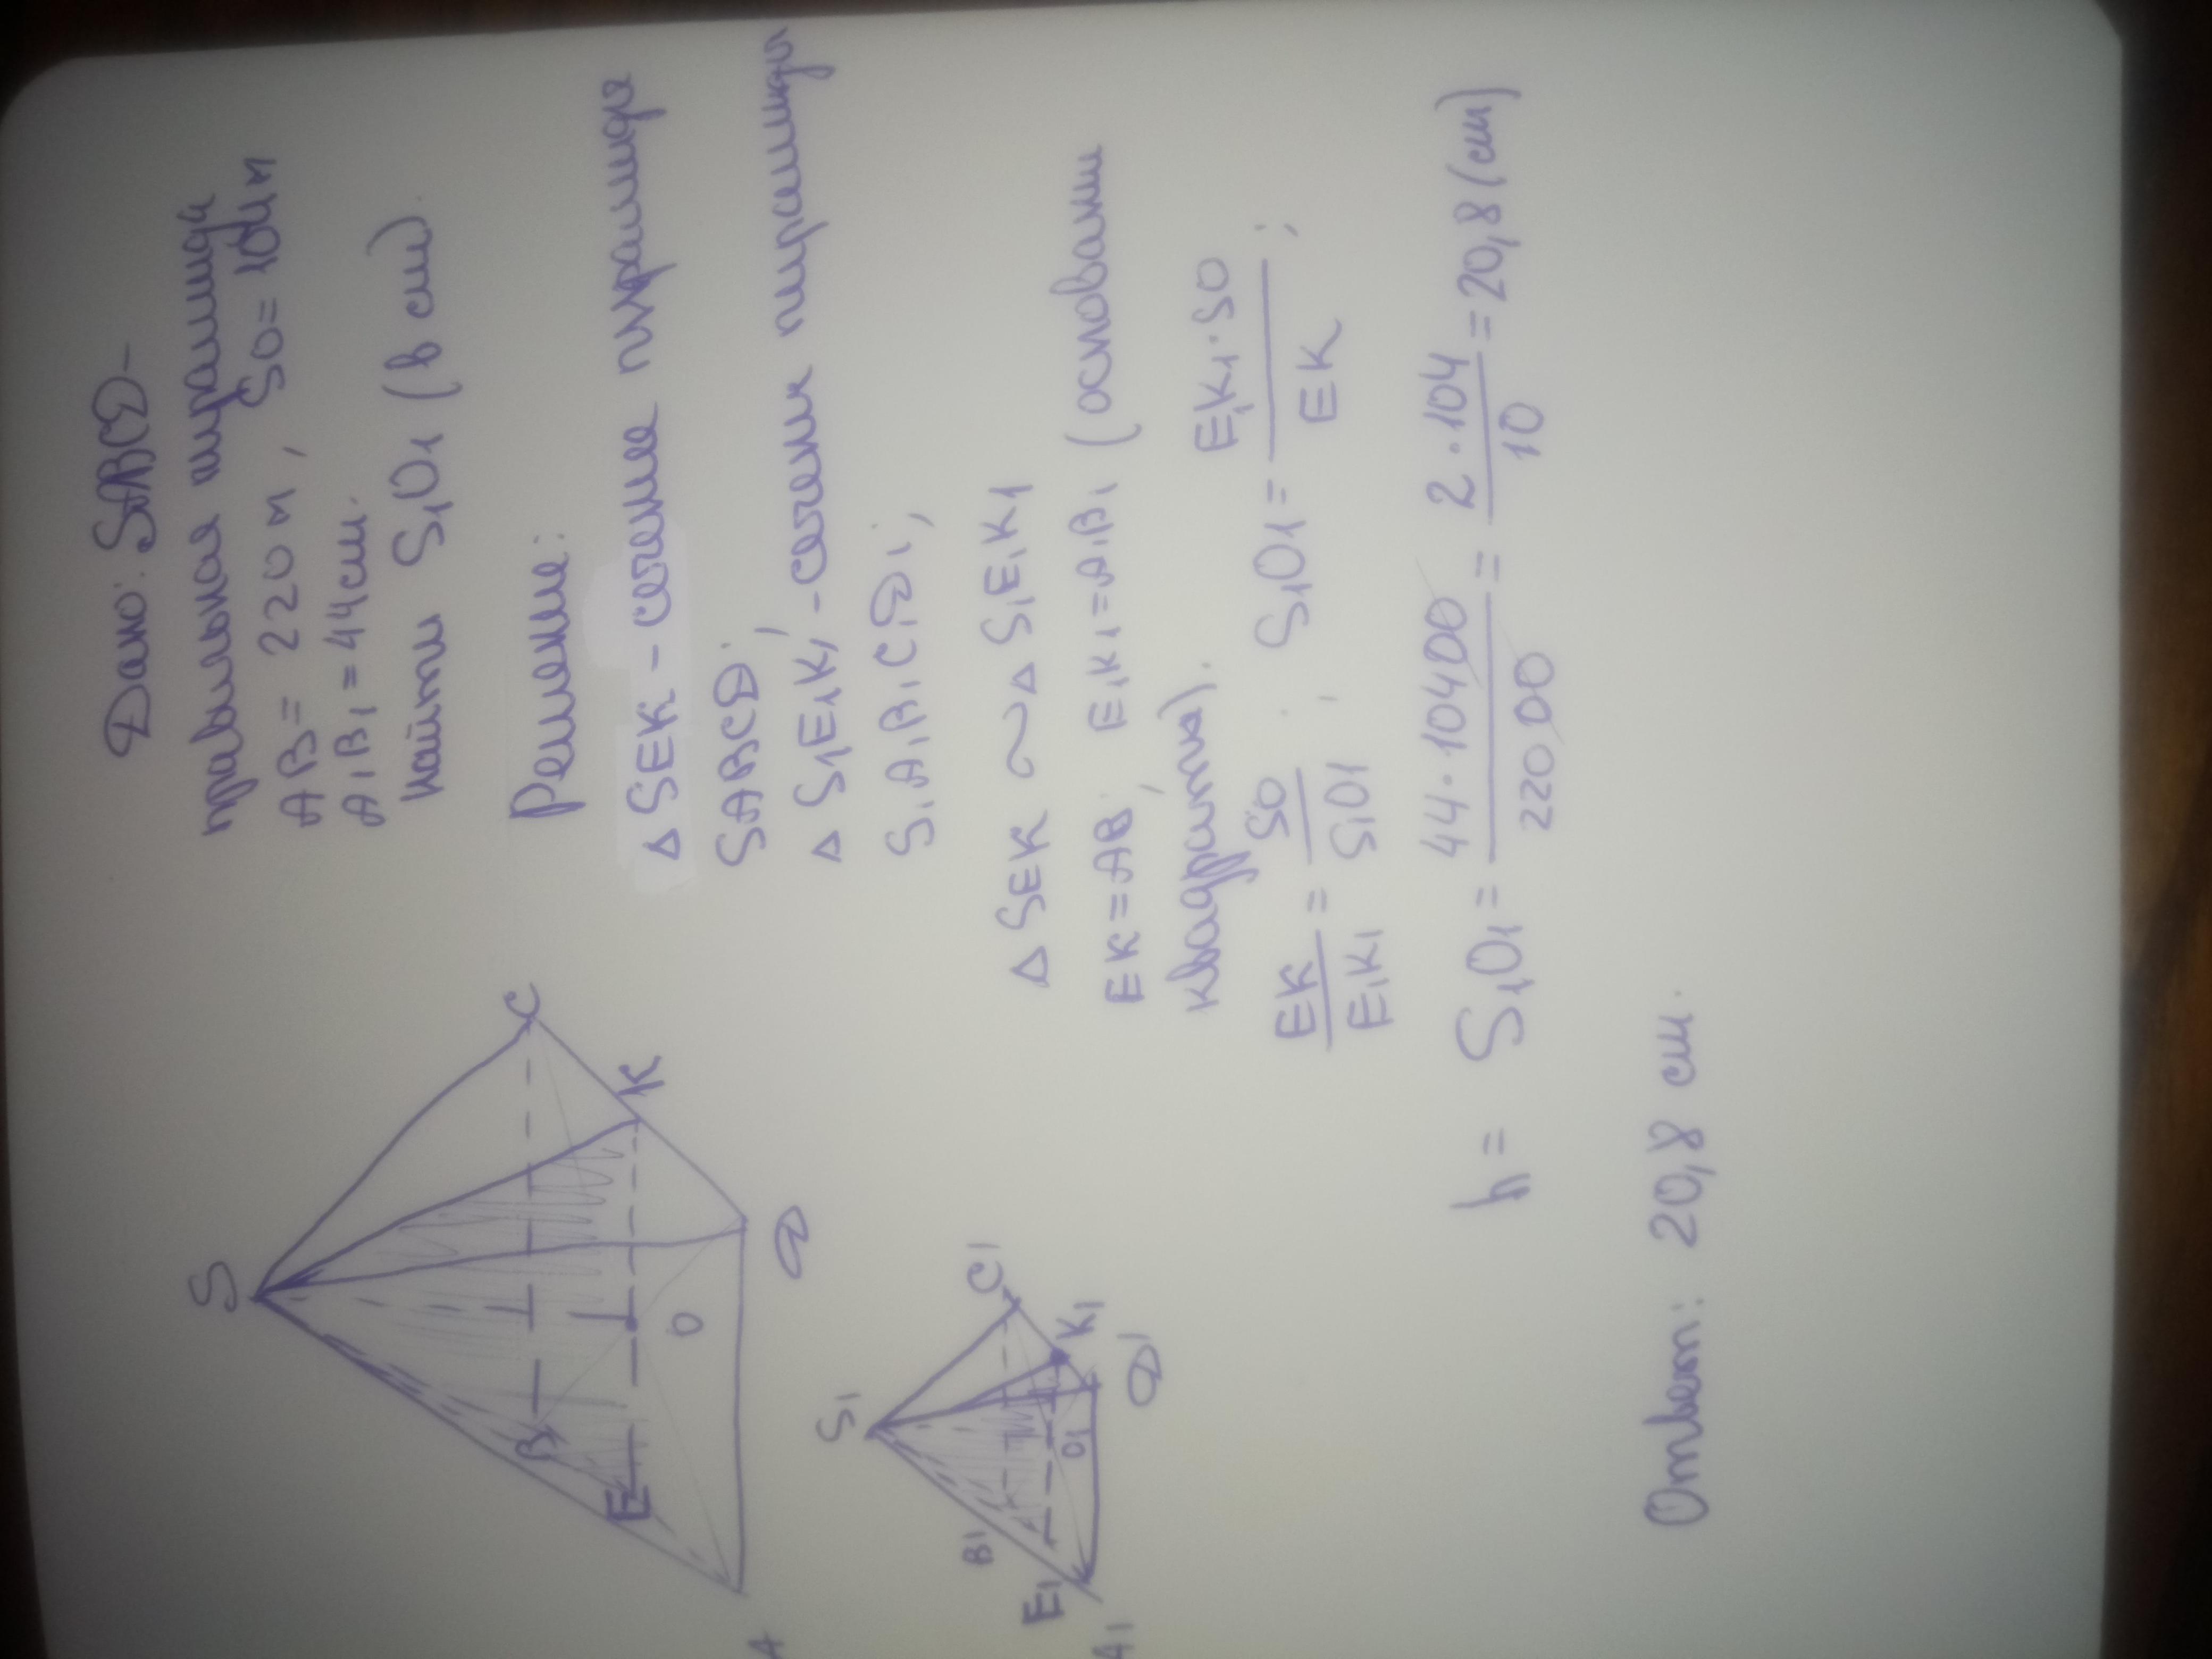 Дано: SABCD -
правильная пирамида
AB = 220 м, SO = 104 м
A1B1 = 44 см.
Найти S1O1 (в см).
Решение:
△ SEK - сечение пирамиды
SABCD;
△ S1E1K1 - сечение пирамиды
S1A1B1C1D1;
△ SEK ∾ △ S1E1K1
EK = AB, E1K1 = A1B1 (основания
квадраты).
EK/E1K1 = SO/S1O1; S1O1 = E1K1·SO/EK;
h = S1O1 = 44·10400/22000 = 2·104/10 = 20,8 (см)
Ответ: 20,8 см.
S
C
B
K
E
O
D
A
S1
C1
B1
K1
E1
O1
D1
A1